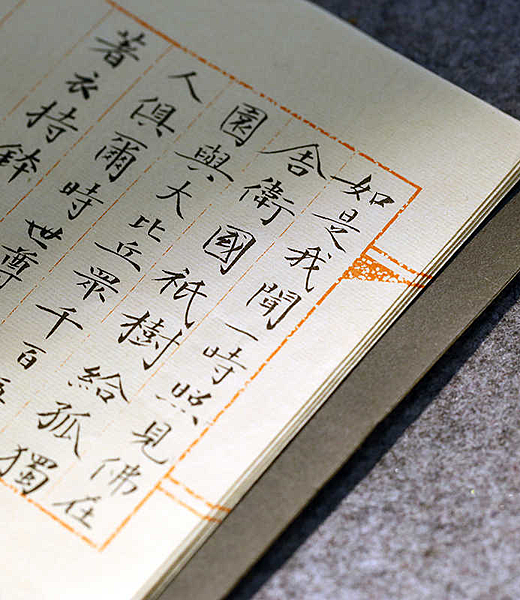 如是我聞一時照見佛在
舍衛國祇樹給孤獨
園與大比丘眾千百
人俱爾時世尊
著衣持鉢